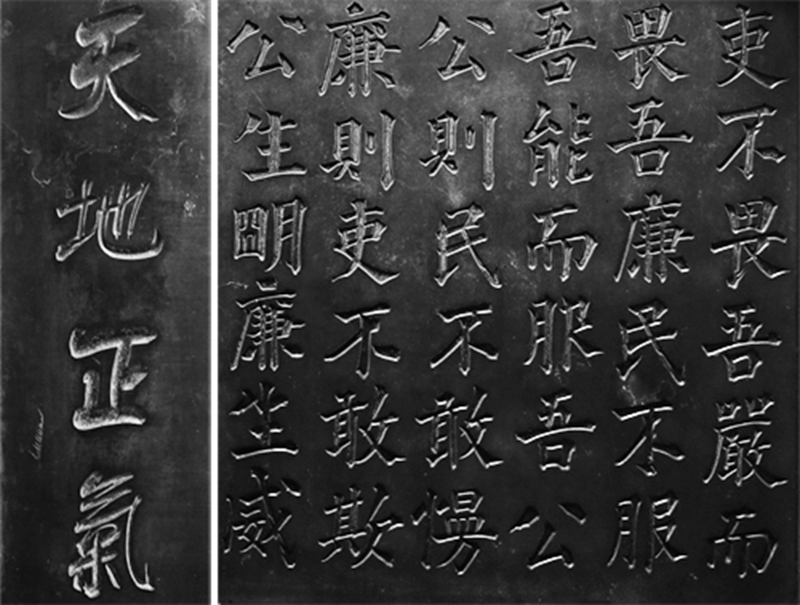 天地正氣
吏不畏吾嚴而
畏吾廉民不服
吾能而服吾公
公則民不敢慢
廉則吏不敢欺
公生明廉生威